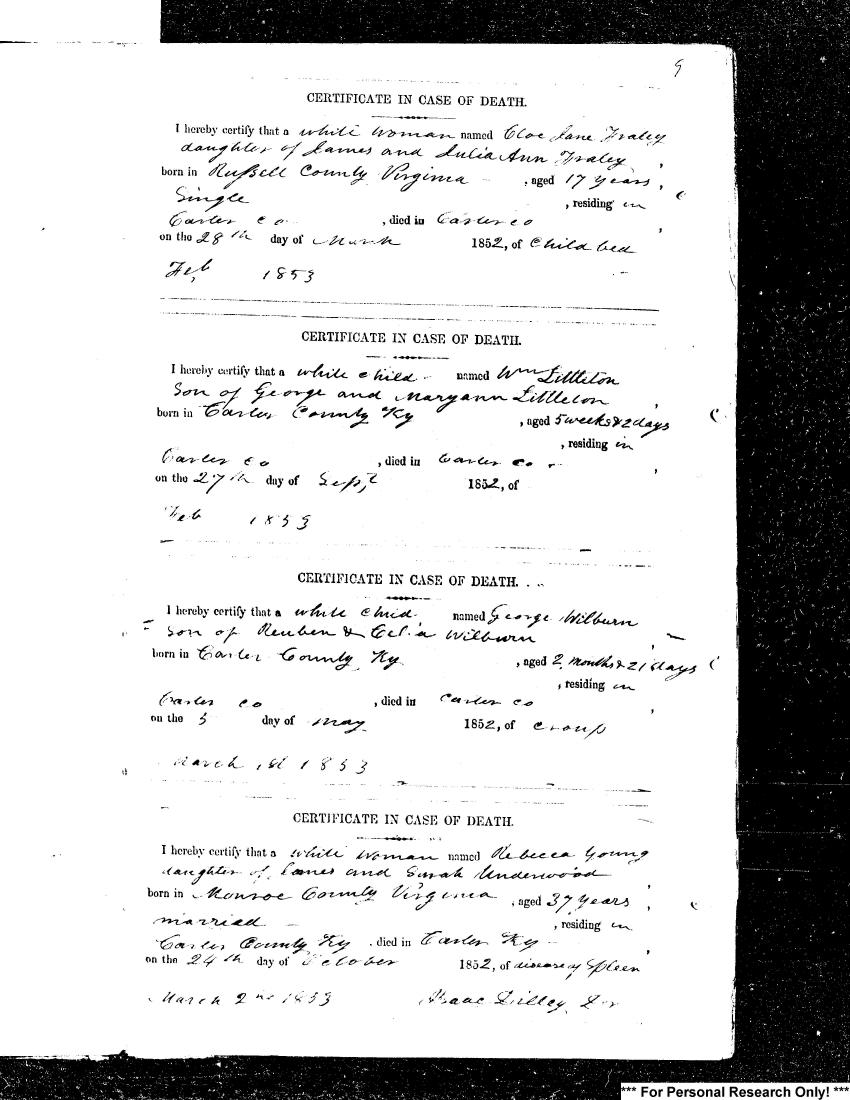 9
CERTIFICATE IN CASE OF DEATH.
I hereby certify that a white woman named Cloe Jane Fraley
daughter of James and Julia Ann Fraley ,
born in Russell County Virginia , aged 17 years ,
Single , residing in
Carter co , died in Carter co ,
on the 28th day of March 1852, of Child bed
Feb 1853
CERTIFICATE IN CASE OF DEATH.
I hereby certify that a white child named Wm Littleton
Son of George and Maryann Littleton ,
born in Carter County Ky , aged 5 weeks & 2 days
, residing in
Carter co , died in Carter co ,
on the 27th day of Sept 1852, of
Feb 1853
CERTIFICATE IN CASE OF DEATH.
I hereby certify that a white child named George Wilburn
Son of Reuben & Celia Wilburn
born in Carter County Ky , aged 2 months & 21 days
, residing in
Carter co , died in Carter co ,
on the 5 day of May 1852, of croup
March 1st 1853
CERTIFICATE IN CASE OF DEATH.
I hereby certify that a white woman named Rebecca Young
daughter of James and Sarah Underwood ,
born in Monroe County Virginia , aged 37 years ,
married , residing in
Carter County Ky , died in Carter Ky ,
on the 24th day of October 1852, of disease of Spleen
March 2nd 1853 Isaac
*** For Personal Research Only! ***